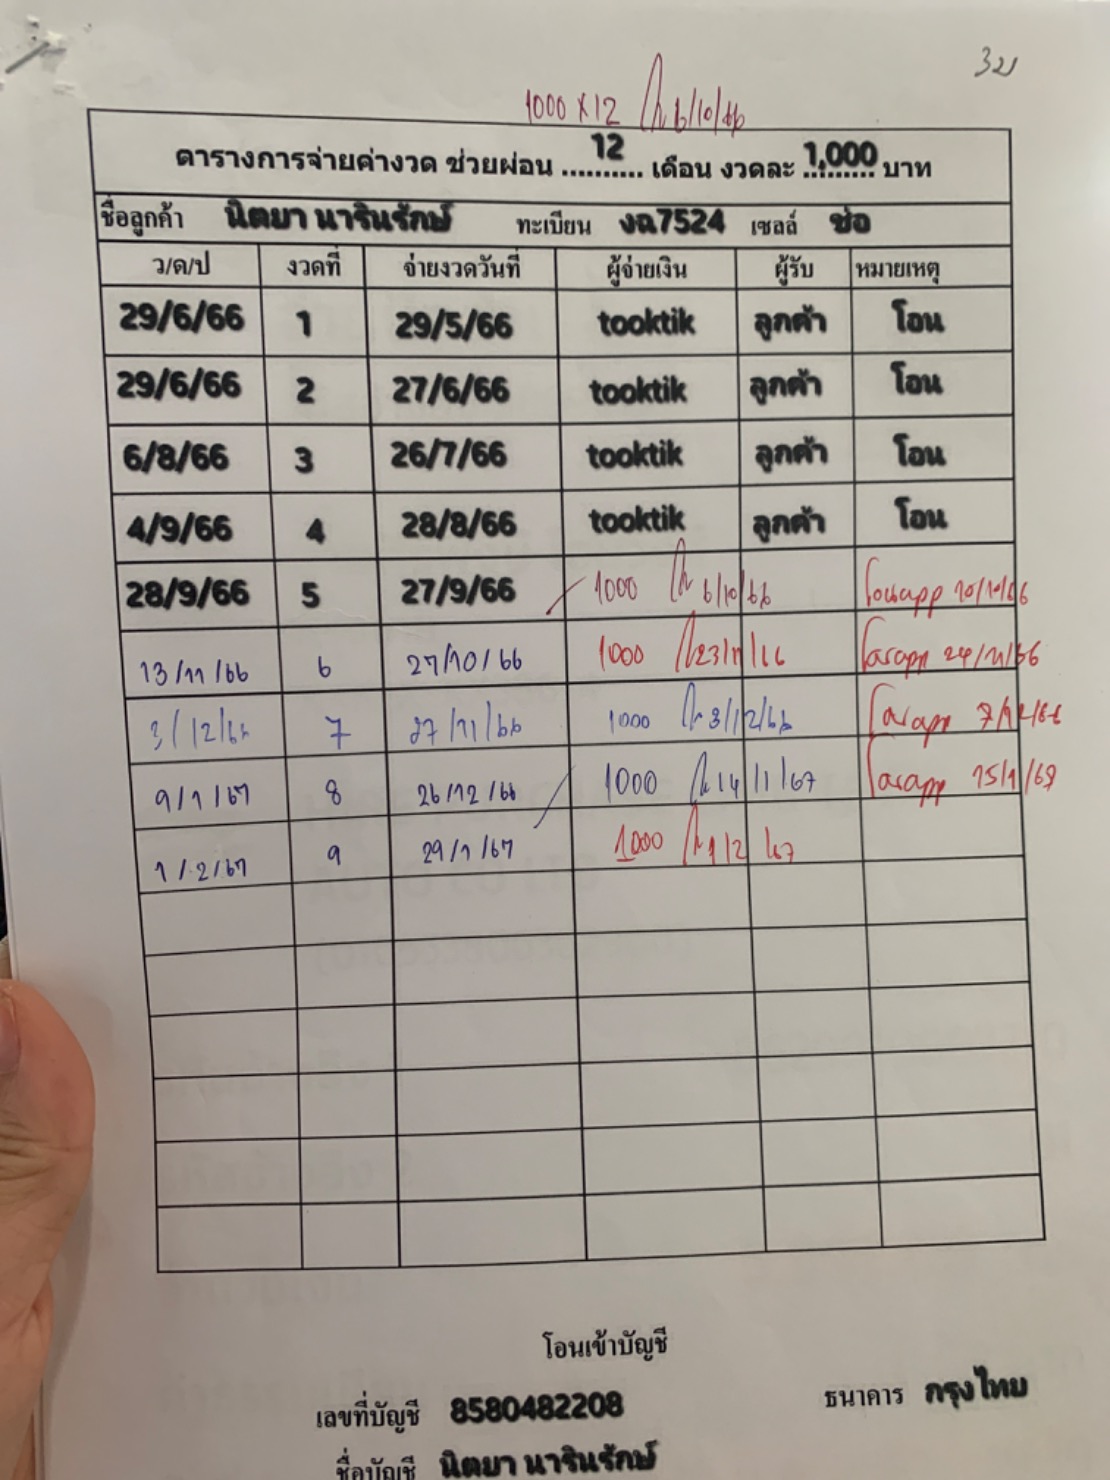 3ข
1000 x 12 6/10/66
ตารางการจ่ายค่างวด ช่วยผ่อน ....12.... เดือน งวดละ ..1,000.. บาท
ชื่อลูกค้า นิตยา นารินรักษ์ ทะเบียน งฉ7524 เซลล์ ช่อ
ว/ด/ป งวดที่ จ่ายงวดวันที่ ผู้จ่ายเงิน ผู้รับ หมายเหตุ
29/6/66 1 29/5/66 tooktik ลูกค้า โอน
29/6/66 2 27/6/66 tooktik ลูกค้า โอน
6/8/66 3 26/7/66 tooktik ลูกค้า โอน
4/9/66 4 28/8/66 tooktik ลูกค้า โอน
28/9/66 5 27/9/66 1000 6/10/66 โอนapp 10/10/66
13/11/66 6 27/10/66 1000 23/11/66 โอนapp 24/11/66
3/12/66 7 27/11/66 1000 3/12/66 โอนapp 7/12/66
9/1/67 8 26/12/66 1000 14/1/67 โอนapp 15/1/67
1/2/67 9 29/1/67 1000 1/2/67
โอนเข้าบัญชี
เลขที่บัญชี 8580482208 ธนาคาร กรุงไทย
ชื่อบัญชี นิตยา นารินรักษ์